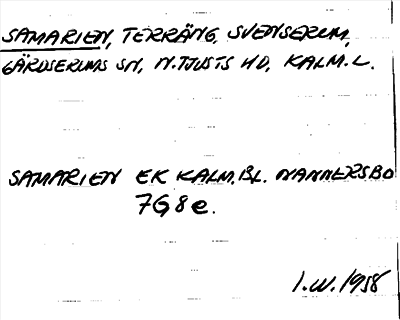 SAMARIEN, TERRÄNG, SVENSERUM,
GÄRDSERUMS SN, N. TJUSTS HD, KALM. L.
SAMARIEN EK KALM. BL. NANNERSBO
7G8e.
I.W. 1958